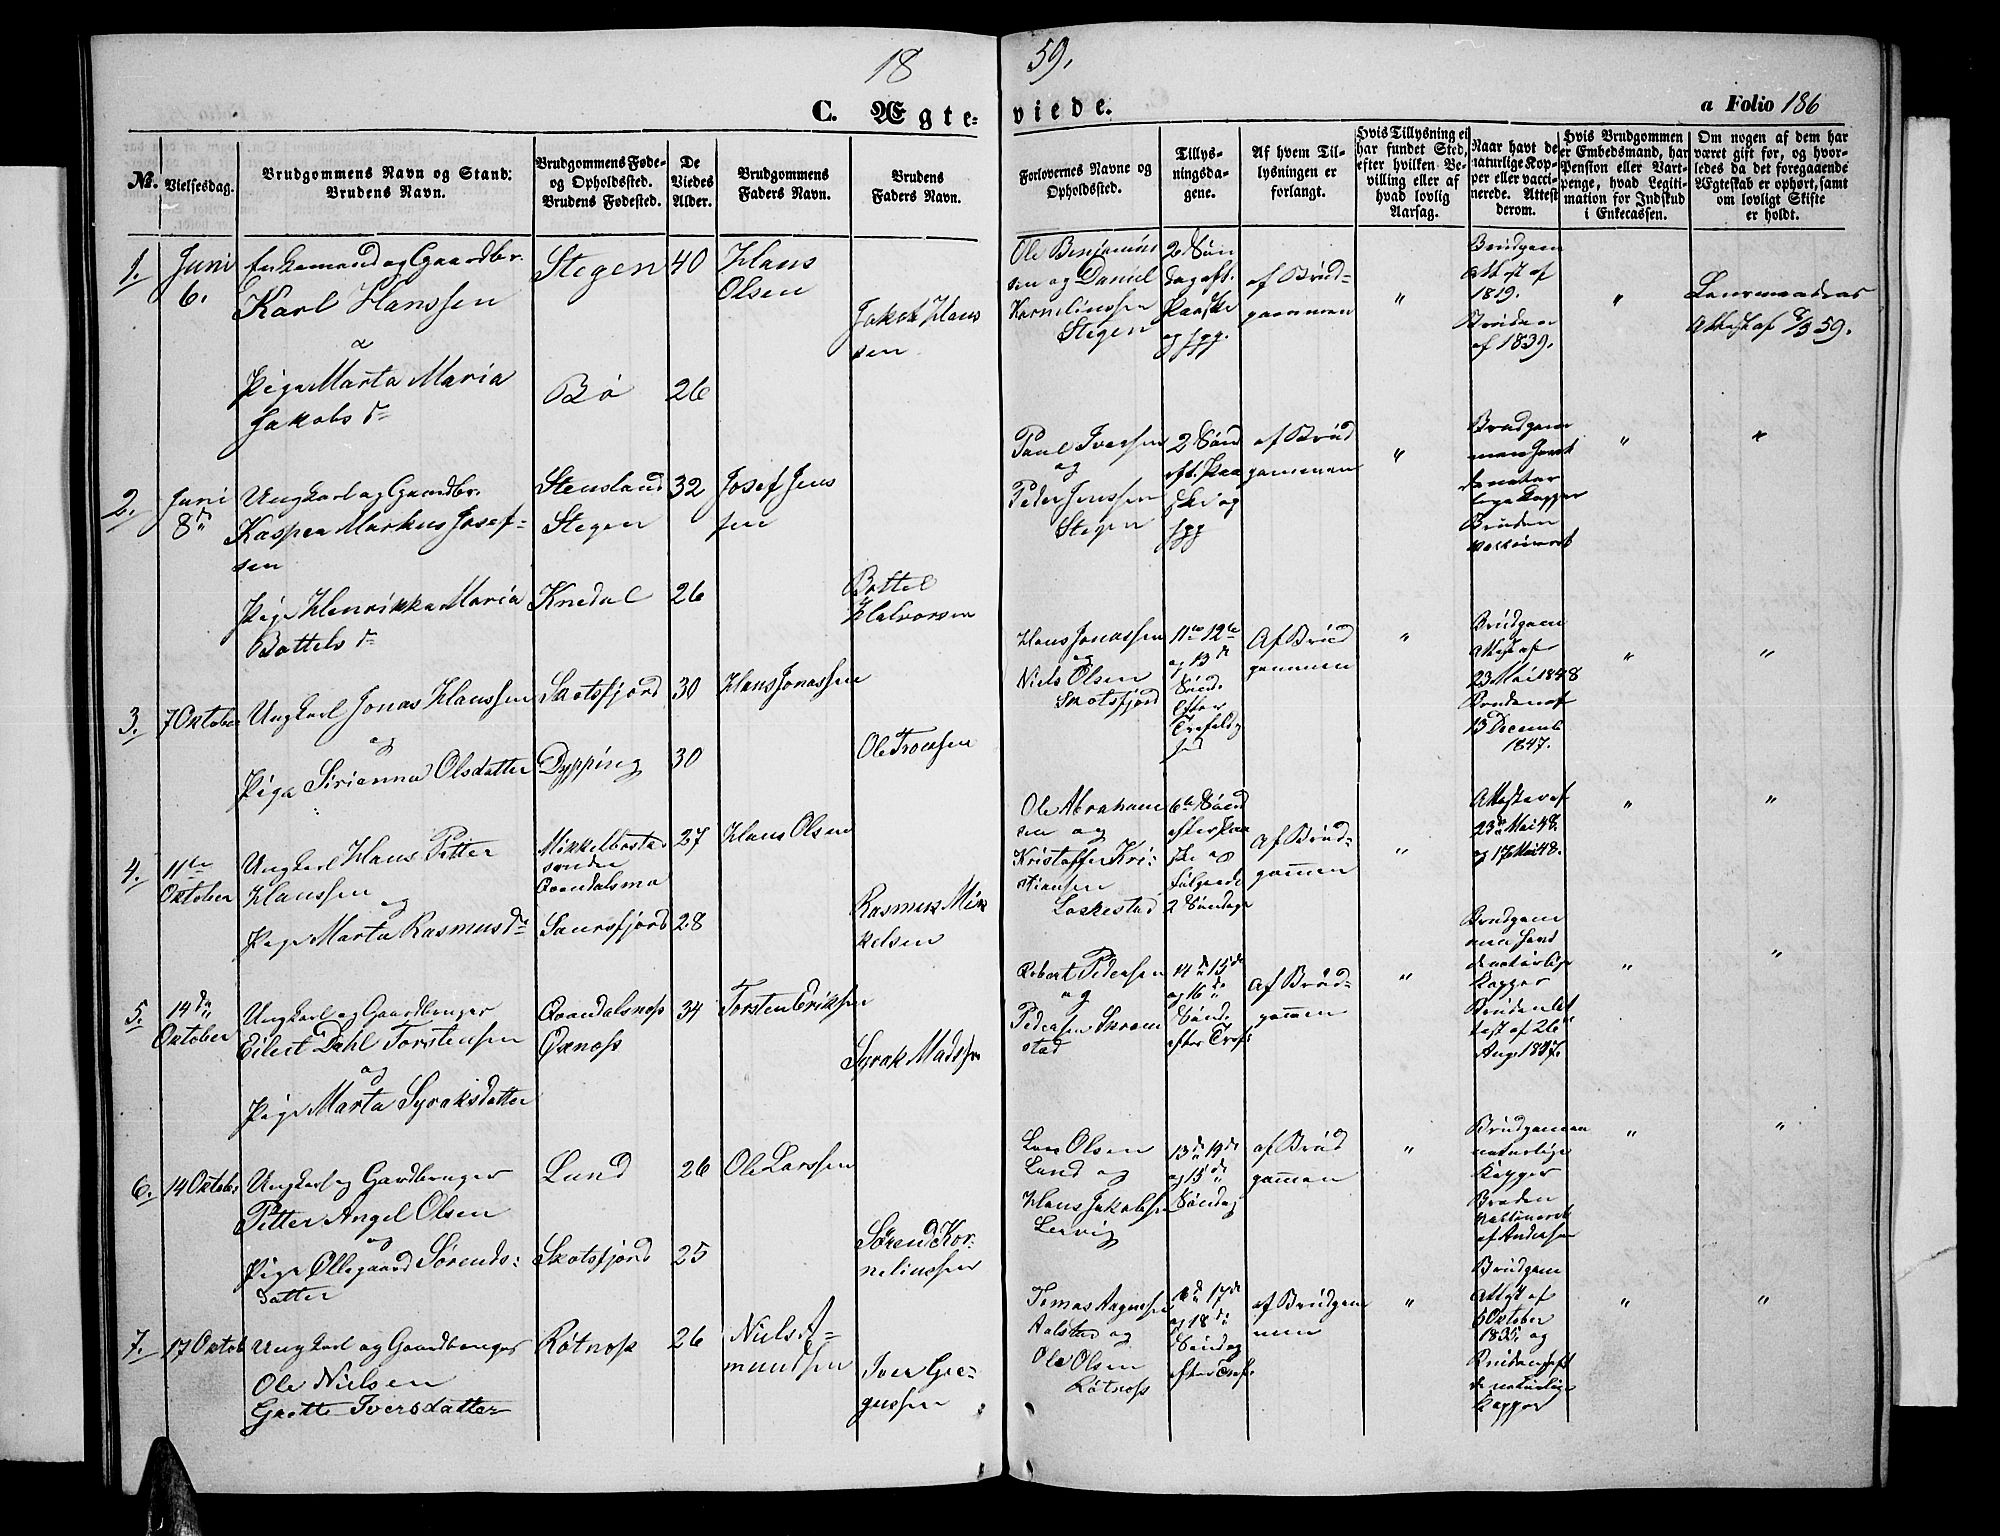 18 59.
C. Ægteviede.
a Folio 186
No.
Vielsesdag.
Brudgommens Navn og Stand;
Brudens Navn.
Brudgommens Føde-
og Opholdssted.
Brudens Fødested.
De
Viedes
Alder.
Brudgommens
Faders Navn.
Brudens
Faders Navn.
Forlovernes Navne og
Opholdssted.
Tillys-
ningsda-
gene.
Af hvem Til-
lysningen er
forlangt.
Hvis Tillysning ei
har fundet Sted,
efter hvilken Be-
villing eller af
hvad lovlig
Aarsag.
Naar havt de
naturlige Kop-
per eller vacci-
nerede. Attest
derom.
Hvis Brudgommen
er Embedsmand, har
Pension eller Vart-
penge, hvad Legiti-
mation for Indskud
i Enkecassen.
Om nogen af dem har
været gift før, og hvor-
ledes da det foregaaende
Ægteskab er ophørt, samt
om lovligt Skifte
er holdt.
1.
Juni
6.
Enkemand og Gaardbr.
Karl Hanssen
Pige Marta Maria
Jakobs d.
Stegen
Bö
40
26
Hans
Olsen
Jakob Hans
sen
Ole Benjamin
sen og Daniel
Korneliussen
Stegen
2 Sön
dag eft.
Paaske
og fgg.
af Brud-
gommen
"
Brudgom
Attest af
1819.
Bruden
af 1839.
"
Lensmandens
Attest af 9/3 59.
2.
Juni
8de
Ungkarl og Gaardbr.
Kasper Markus Josef-
sen
Pige Henrikka Maria
Bottels d.
Stensland
Stegen
Knedal
32
26
Josef Jens
sen
Bottel
Halvorsen
Paul Iversen
og
Peder Jenssen
Stegen
2 Sönd
eft. Paa
ske og
fgg
af Brud
gommen
"
Brudgom
men havt
de natur
lige Kopper
Bruden
vaksineret
"
"
3.
7 Oktober
Ungkarl Jonas Hanssen
og
Pige Sirianna Olsdatter
Skotsfjord
Dypping
30
30
Hans Jonassen
Ole Tronsen
Hans Jonassen
og
Niels Olsen
Skotsfjord
11te 12te
og 13de
Sönd.
Efter
Trefoldig
hed
Af Brud
gommen
"
Brudgom
Attest af
23 Mai 1848
Bruden af
13 Decemb
1847.
"
"
4.
11te
Oktober
Ungkarl Hans Petter
Hanssen
og
Pige Marta Rasmusd.
Mikkelbostad
Saursfjord
27
28
Hans Olsen
Rasmus Mik
kelsen
Ole Abraham
sen og
Kristoffer Kri-
stiansen
Laskestad
6te Sönd
efter Paa
ske og
fölgende
2 Söndage
af Brud-
gommen
"
Attester af
23de Mai 48.
og 17 Mai 48.
"
"
5.
14de
Oktober
Ungkarl og Gaardbruger
Eilert Dahl Torstensen
og
Pige Marta Syraksdatter
Qvandalsnæss
Oxnæss
34
Torsten Eriksen
Syrak Madssen
Robert Pedersen
og
Pedersen
14de 15de
og 16de
Sönd.
efter Tref.
af Brud-
gommen
"
Brudgom
men havt
de naturlige
Kopper
Bruden At
test af 26
Aug.
"
"
6.
14 Oktober
Ungkarl og Gardbruger
Petter Angel Olsen
og
Pige Ollegaard Sörends-
datter
Lund
Skotsfjord
26
25
Ole Larssen
Sörend Kor-
neliussen
Lars Olsen
Lund og
Hans Jakobsen
Lervig
13de
og 15de
Söndag
af Brud
gommen
"
Brudgommen
naturlige
Kopper
Bruden
vaksineret
af Andersen
"
"
7.
17 Oktob
Ungkarl og Gaardbruger
Ole Nielsen
Grette Iversdatter
Rötnæss
26
Niels A-
mundsen
Iver Gre-
gussen
Tomas Aagensen
Aalstad og
Ole Olsen
Rötnæss
16de 17de
og 18de
Söndag
efter Tref.
af Brudgom
men
"
Brudgom
Attest af
5 Oktober
1835 og
Bruden haft
de naturlige
Kopper
"
"